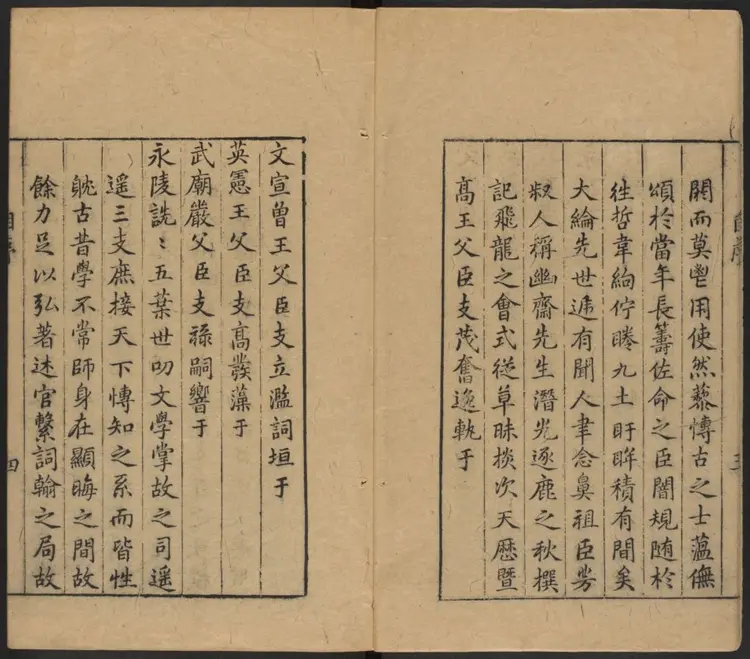 而莫鬯用使然藜慱古之士薀憮
頌於當年長籌佐命之臣闇規随於
徃哲韋絢佇睠九土盱眸積有間矣
大綸先世逓有聞人聿念鼻祖臣
叔人稱幽齋先生潜光逐鹿之秋撰
記飛龍之會式從草昧掞次天曆暨
髙王父臣支茂奮逸軌于
文宣曽王父臣支立濫詞垣于
英憲王父臣支髙發藻于
武廟嚴父臣支祿嗣響于
永陵詵〻五葉世叨文學掌故之司遥
遥三支庶接天下慱知之系而皆性
躭古昔學不常師身在顯晦之間故
餘力足以弘著述官繫詞翰之局故
四